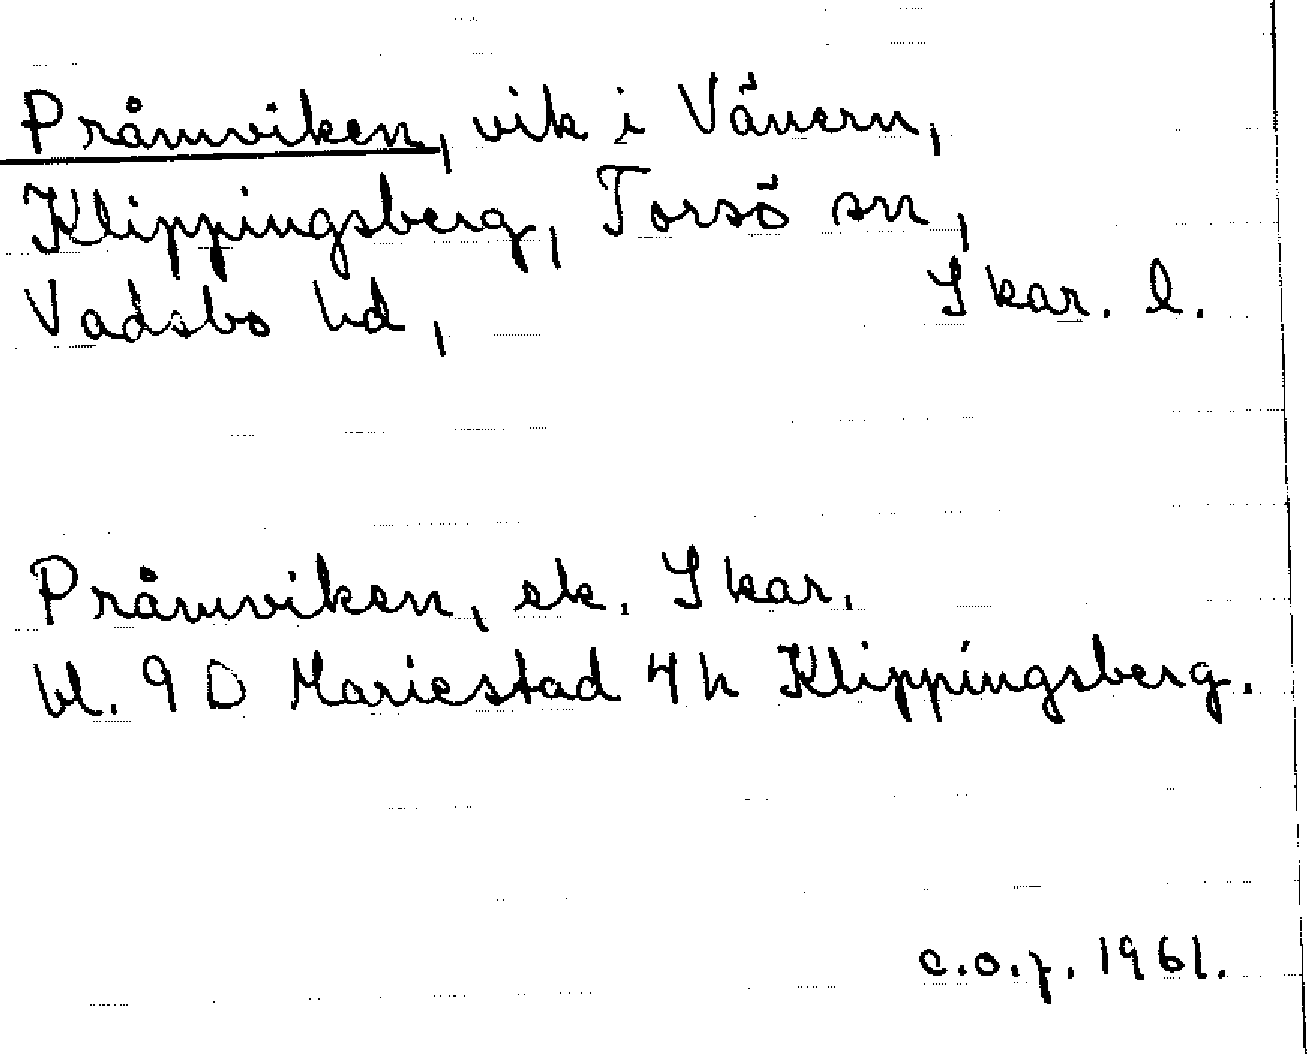 Pråmviken, vik i Vänern,
Klippingsberg, Torsö sn,
Vadsbo hd, Skar. l.
Pråmviken, ek. Skar.
bl. 9 D Mariestad 4 h Klippingsberg.
c.o.z. 1961.